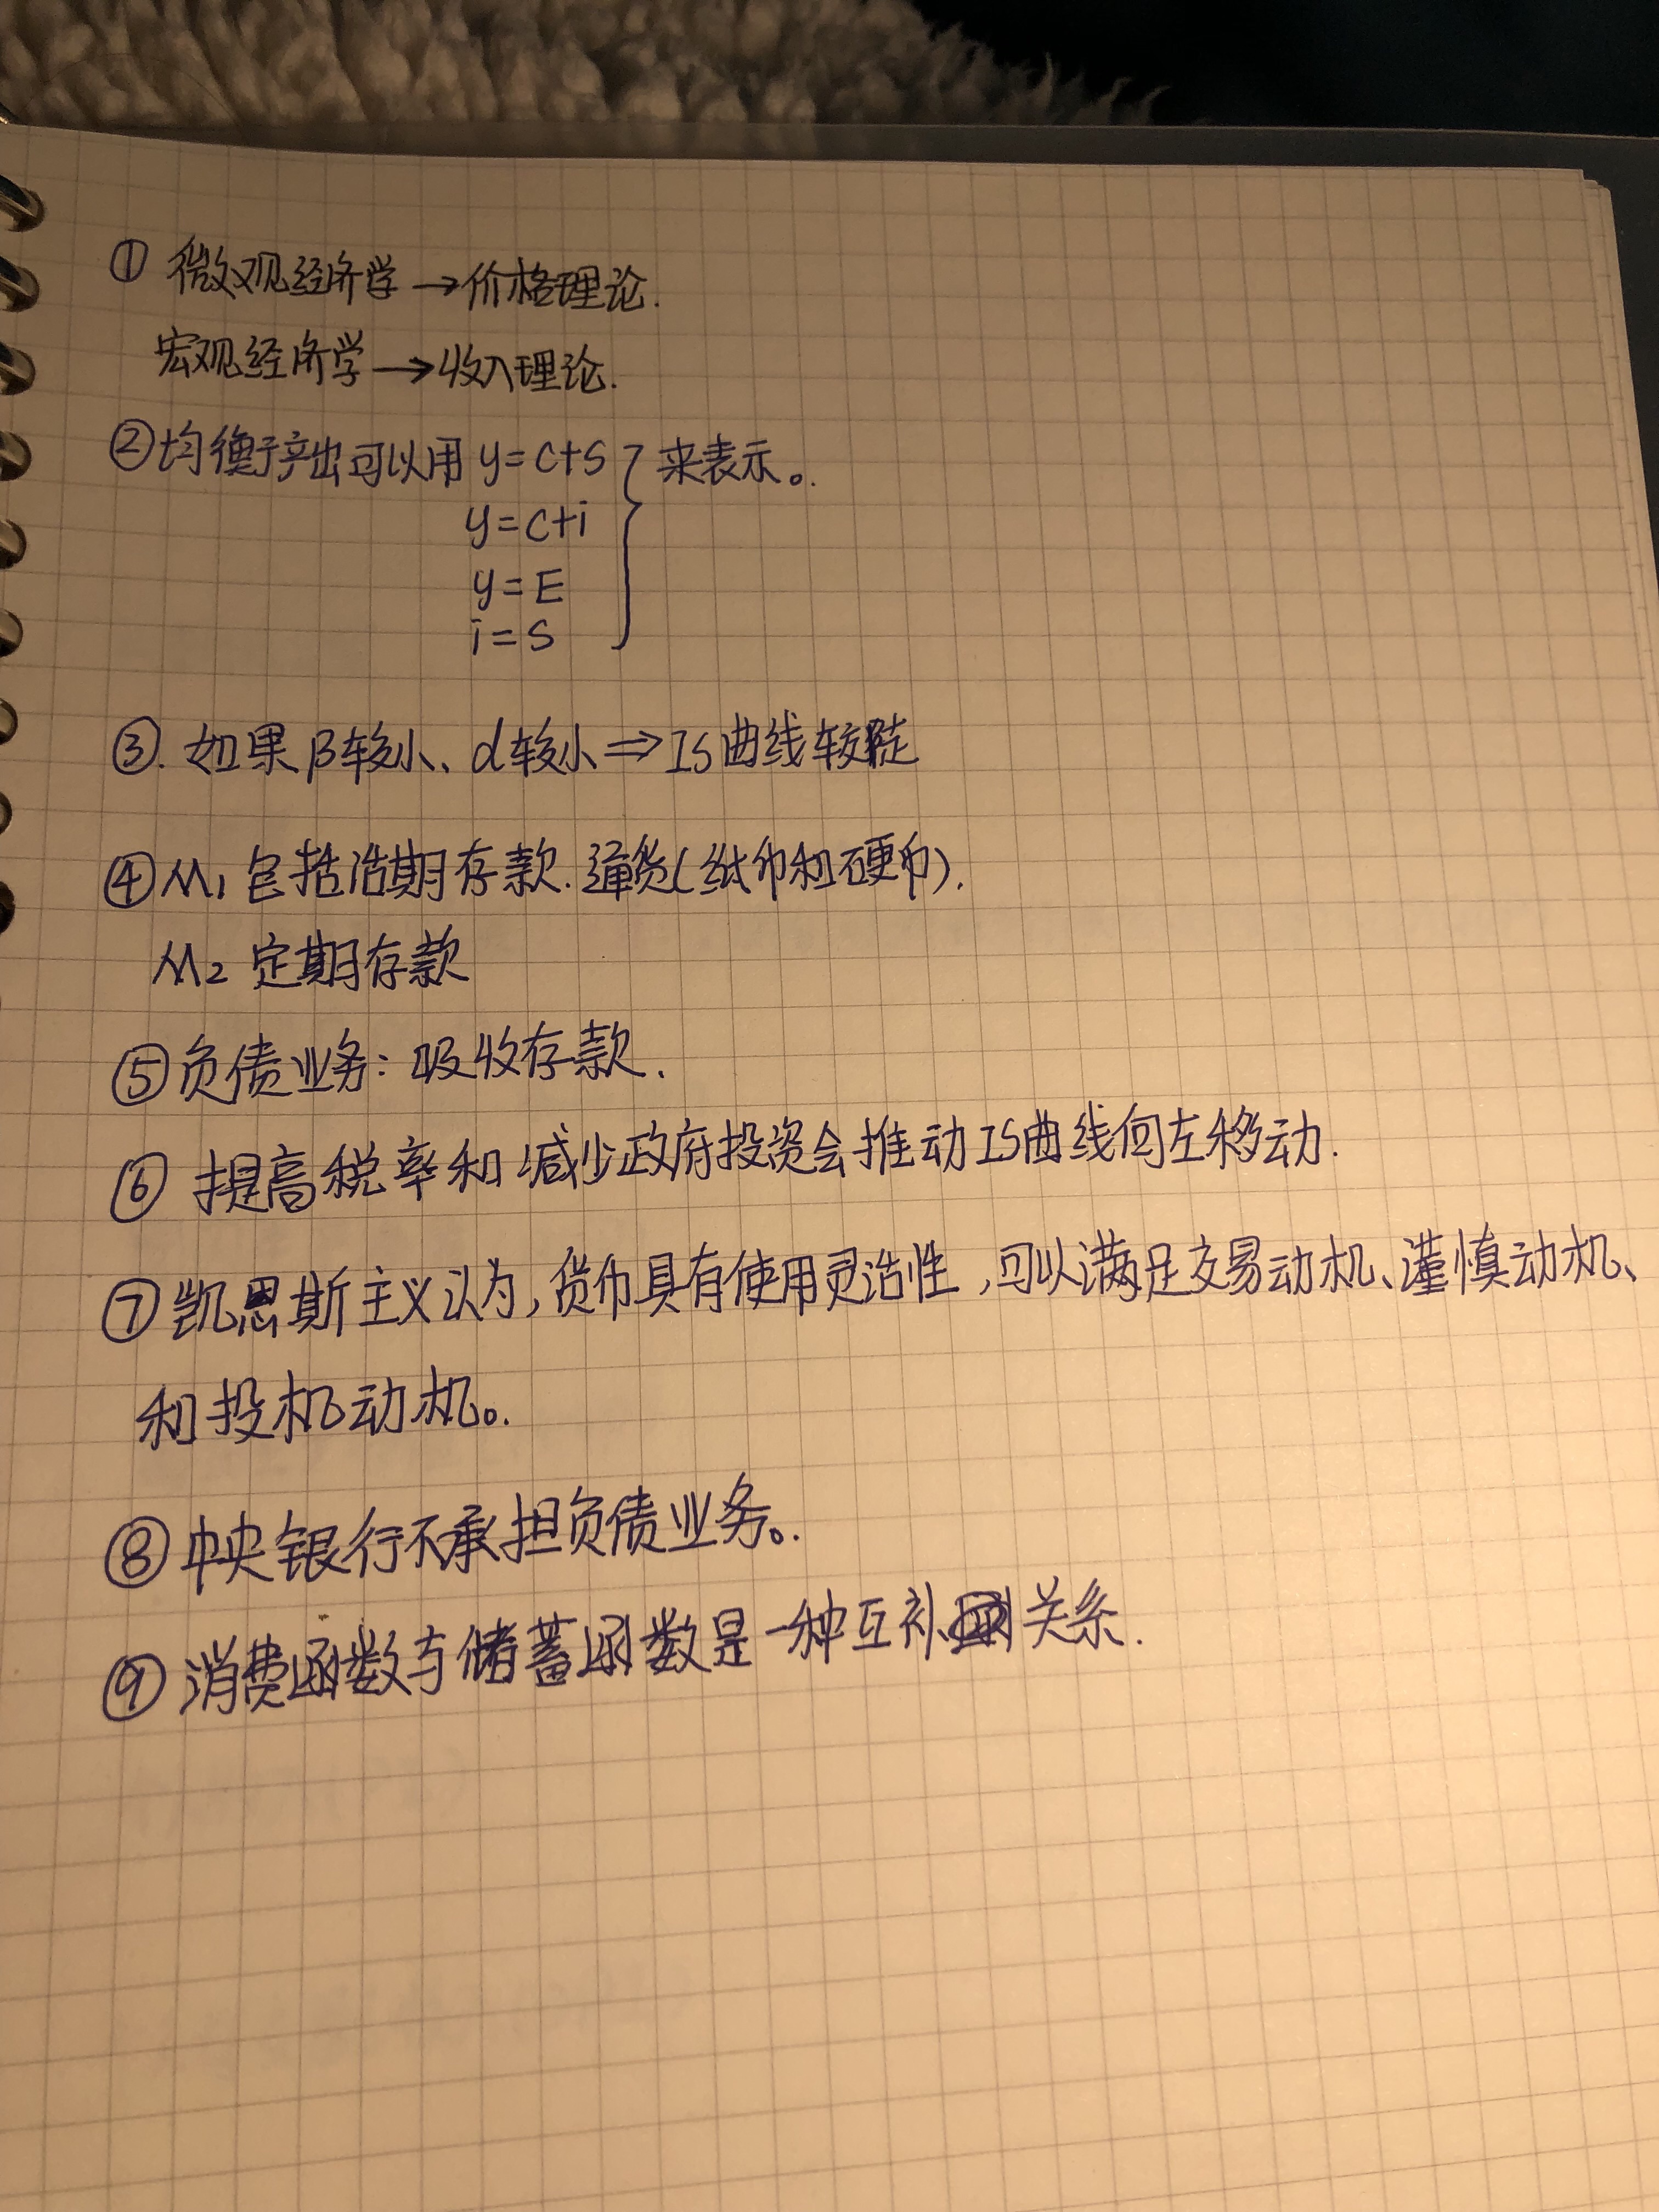 ① 微观经济学→价格理论.
宏观经济学→收入理论.
②均衡产出可以用 y=c+s 来表示。.
y=c+i
y=E
i=s
③. 如果β较小、d较小⇒IS曲线较陡
④M₁包括活期存款.通货(纸币和硬币).
M₂ 定期存款
⑤负债业务:吸收存款.
⑥ 提高税率和减少政府投资会推动IS曲线向左移动.
⑦凯恩斯主义认为,货币具有使用灵活性,可以满足交易动机、谨慎动机、
和投机动机。.
⑧中央银行不承担负债业务。.
⑨消费函数与储蓄函数是一种互补关系.